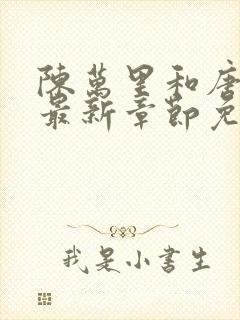 陳萬里和唐
最新章節免
我是小書生